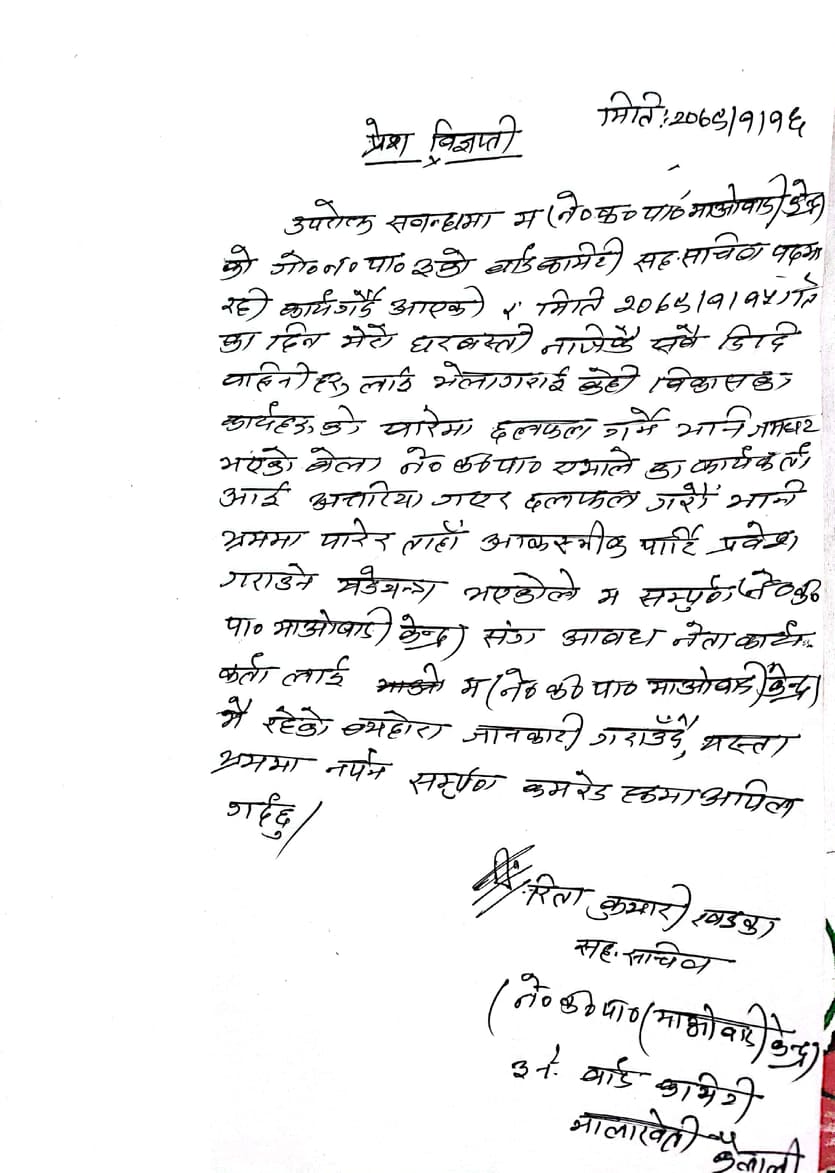 मिति: २०७९/१/१६
प्रेश विज्ञप्ती
उपरोक्त सवन्धमा म (ने०क०पा० माओवादी केन्द्र)
को गो०न०पा० ३को वार्ड कमिटी सह.सचिव पदमा
रही कार्यगर्दै आएको र मिति २०७९/१/१५ गते
का दिन मेरो घरवस्ती नजिकै सवै दिदि
वाहिनीहरु लाई भेलागराई केही विकासका
कार्यहरुको वारेमा छलफल गर्ने भनि जमघट
भएको वेला ने० क०पा० एमाले का कार्यकर्ता
आई अत्तरिया गएर छलफल गरौं भनी
भ्रममा पारेर त्यहाँ आकस्मीक पार्टि प्रवेश
गराउने षडेयन्त्र भएकोले म सम्पुर्ण (ने०क०
पा० माओवादी केन्द्र) संग आवध्द नेता कार्य-
कर्ता लाई म (ने० क० पा० माओवादी केन्द्र)
मै रहेको व्यहोरा जानकारी गराउँदै, यस्ता
भ्रममा नर्पन सम्पूर्ण कमरेड हरुमा अपिल
गर्दछु।
रिता कुमारी खडका
सह.सचिव
(ने० क० पा० (माओवादी केन्द्र)
३ नं. वार्ड कमिटी
मालाखेती कैलाली